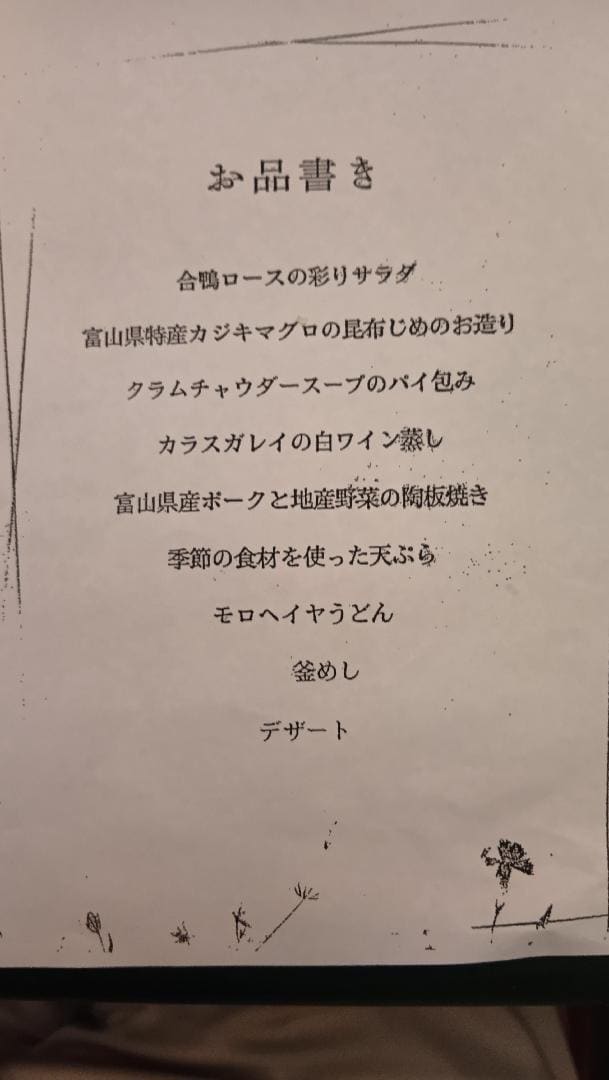 お品書き
合鴨ロースの彩りサラダ
富山県特産カジキマグロの昆布じめのお造り
クラムチャウダースープのパイ包み
カラスガレイの白ワイン蒸し
富山県産ポークと地産野菜の陶板焼き
季節の食材を使った天ぷら
モロヘイヤうどん
釜めし
デザート